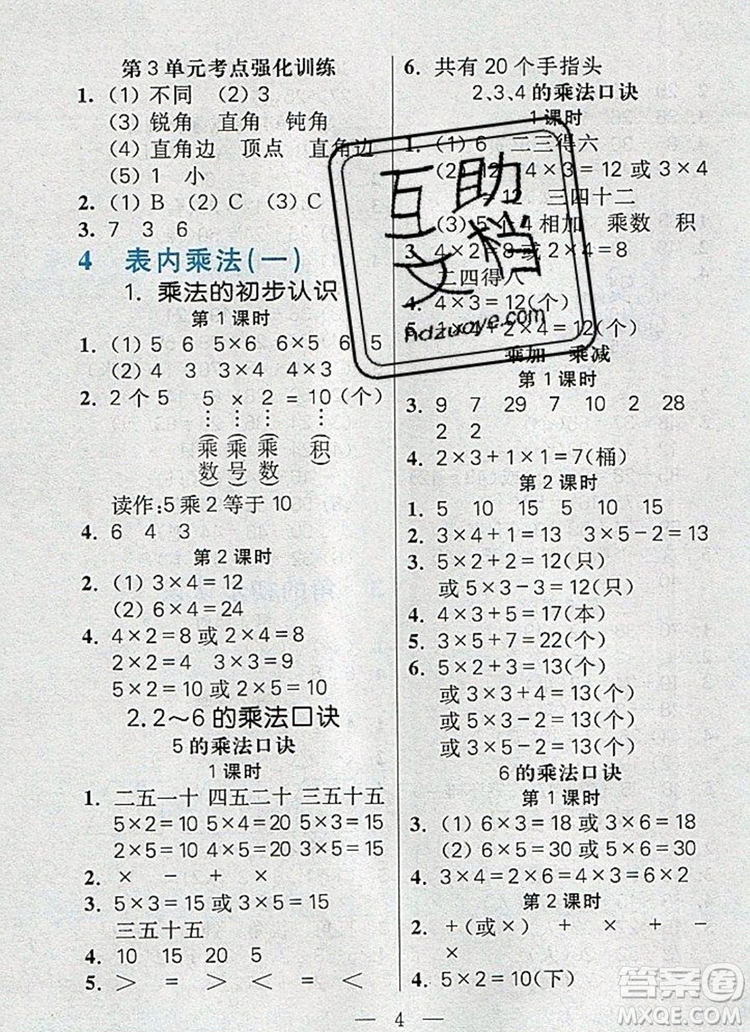 第3单元考点强化训练
1. (1) 不同 (2) 3
(3) 锐角 直角 钝角
(4) 直角边 顶点 直角边
(5) 1 小
2. (1) B (2) C (3) C
3. 7 3 6
4 表内乘法(一)
1. 乘法的初步认识
第1课时
1. (1) 5 6 5×6 6×5 6 5
(2) 4 3 3×4 4×3
2. 2个5 5×2=10(个)
(乘数) (乘号) (乘数) (积)
读作:5乘2等于10
4. 6 4 3
第2课时
2. (1) 3×4=12
(2) 6×4=24
4. 4×2=8 或 2×4=8
2×2=4 3×3=9
5×2=10 或 2×5=10
2. 2～6的乘法口诀
5的乘法口诀
1课时
1. 二五一十 四五二十 三五十五
5×2=10 5×4=20 5×3=15
2×5=10 4×5=20 3×5=15
2. × - + ×
3. 5×3=15 或 3×5=15
三五十五
4. 10 15 20 5
5. > = > < = <
6. 共有20个手指头
2、3、4的乘法口诀
1课时
1. (1) 6 二三得六
(2) 12 4×3=12 或 3×4
=12 三四十二
(3) 5 4 相加 乘数 积
3. 4×2=8 或 2×4=8
二四得八
4. 4×3=12(个)
5. 4+2×4=12(个)
乘加 乘减
第1课时
3. 9 7 29 7 10 2 28
2 2
4. 2×3+1×1=7(桶)
第2课时
1. 5 10 15 5 10 15
2. 3×4+1=13 3×5-2=13
3. 5×2+2=12(只)
或5×3-3=12(只)
4. 4×3+5=17(本)
5. 3×5+7=22(个)
6. 5×2+3=13(个)
或3×3+4=13(个)
或4×4-3=13(个)
或5×3-2=13(个)
6的乘法口诀
第1课时
3. (1) 6×3=18 或 3×6=18
(2) 6×5=30 或 5×6=30
4. 3×4=2×6=4×3=6×2
第2课时
2. +(或×) + × + -
- ×
4. 5×2=10(下)
4
互助文档
hdzuoye.com
答案圈
MXQE.COM